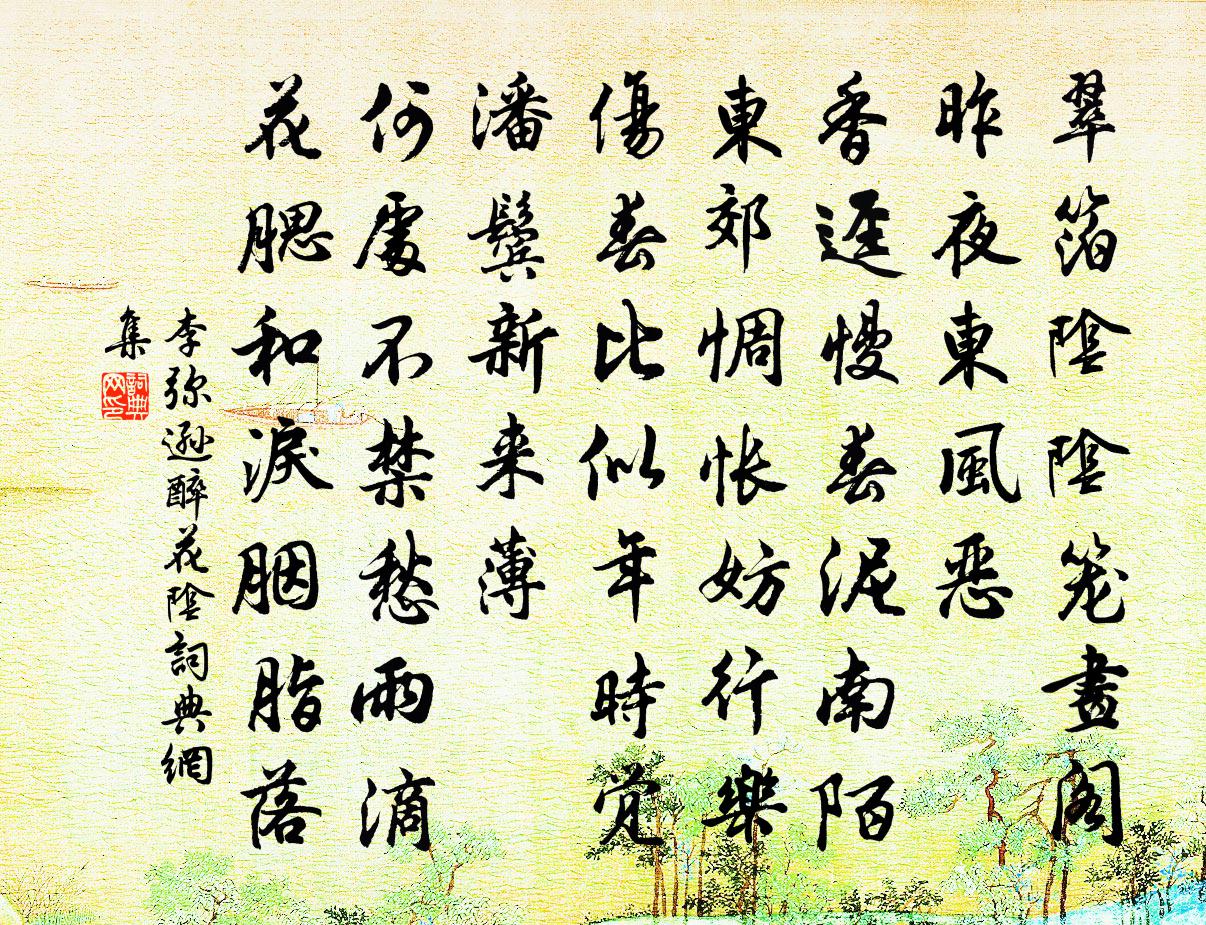 翠箔陰陰笼畫阁
昨夜東風恶
香逕慢春泥南陌
東郊惆怅妨行樂
傷春比似年時觉
潘鬓新来薄
何處不禁愁雨滴
花腮和淚胭脂落
李弥逊醉花陰詞典網
集
詞典網印